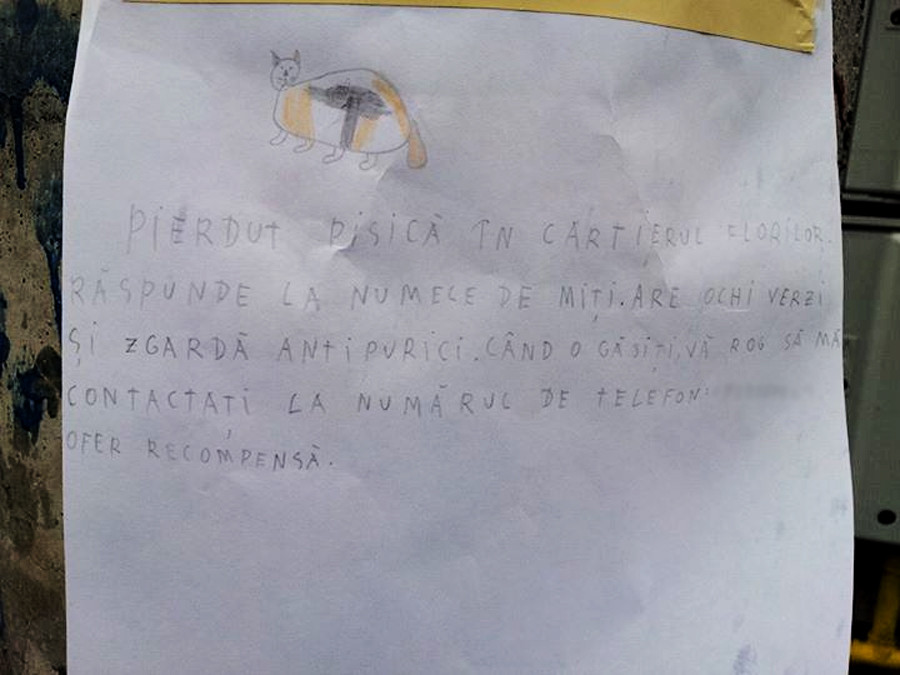 PIERDUT PISICĂ ÎN CARTIERUL FLORILOR.
RĂSPUNDE LA NUMELE DE MIȚI.ARE OCHI VERZI
ȘI ZGARDĂ ANTIPURICI.CÂND O GĂSIȚI,VĂ ROG SĂ MĂ
CONTACTAȚI LA NUMĂRUL DE TELEFON:
OFER RECOMPENSĂ.